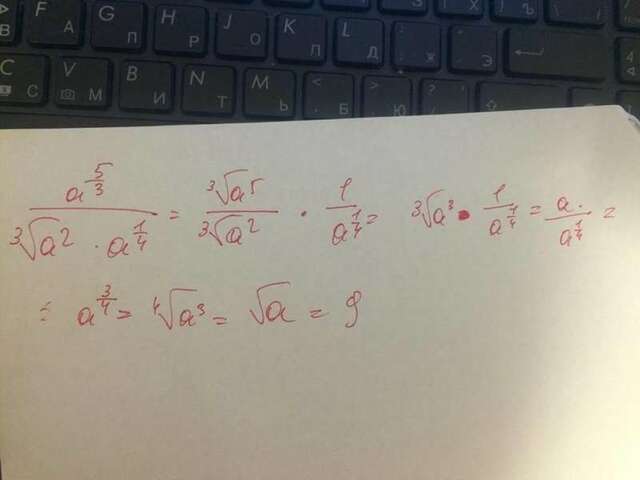 F G H J K L
В А П Р О Л Д Ж Э
C V B N M < >
С М И Т Ь Б Ю
a^(5/3) / (³√a² · a^(1/4)) = ³√a⁵ / ³√a² · 1 / a^(1/4) = ³√a³ · 1 / a^(1/4) = a· / a^(1/4) =
= a^(3/4) = ⁴√a³ = √a = 9